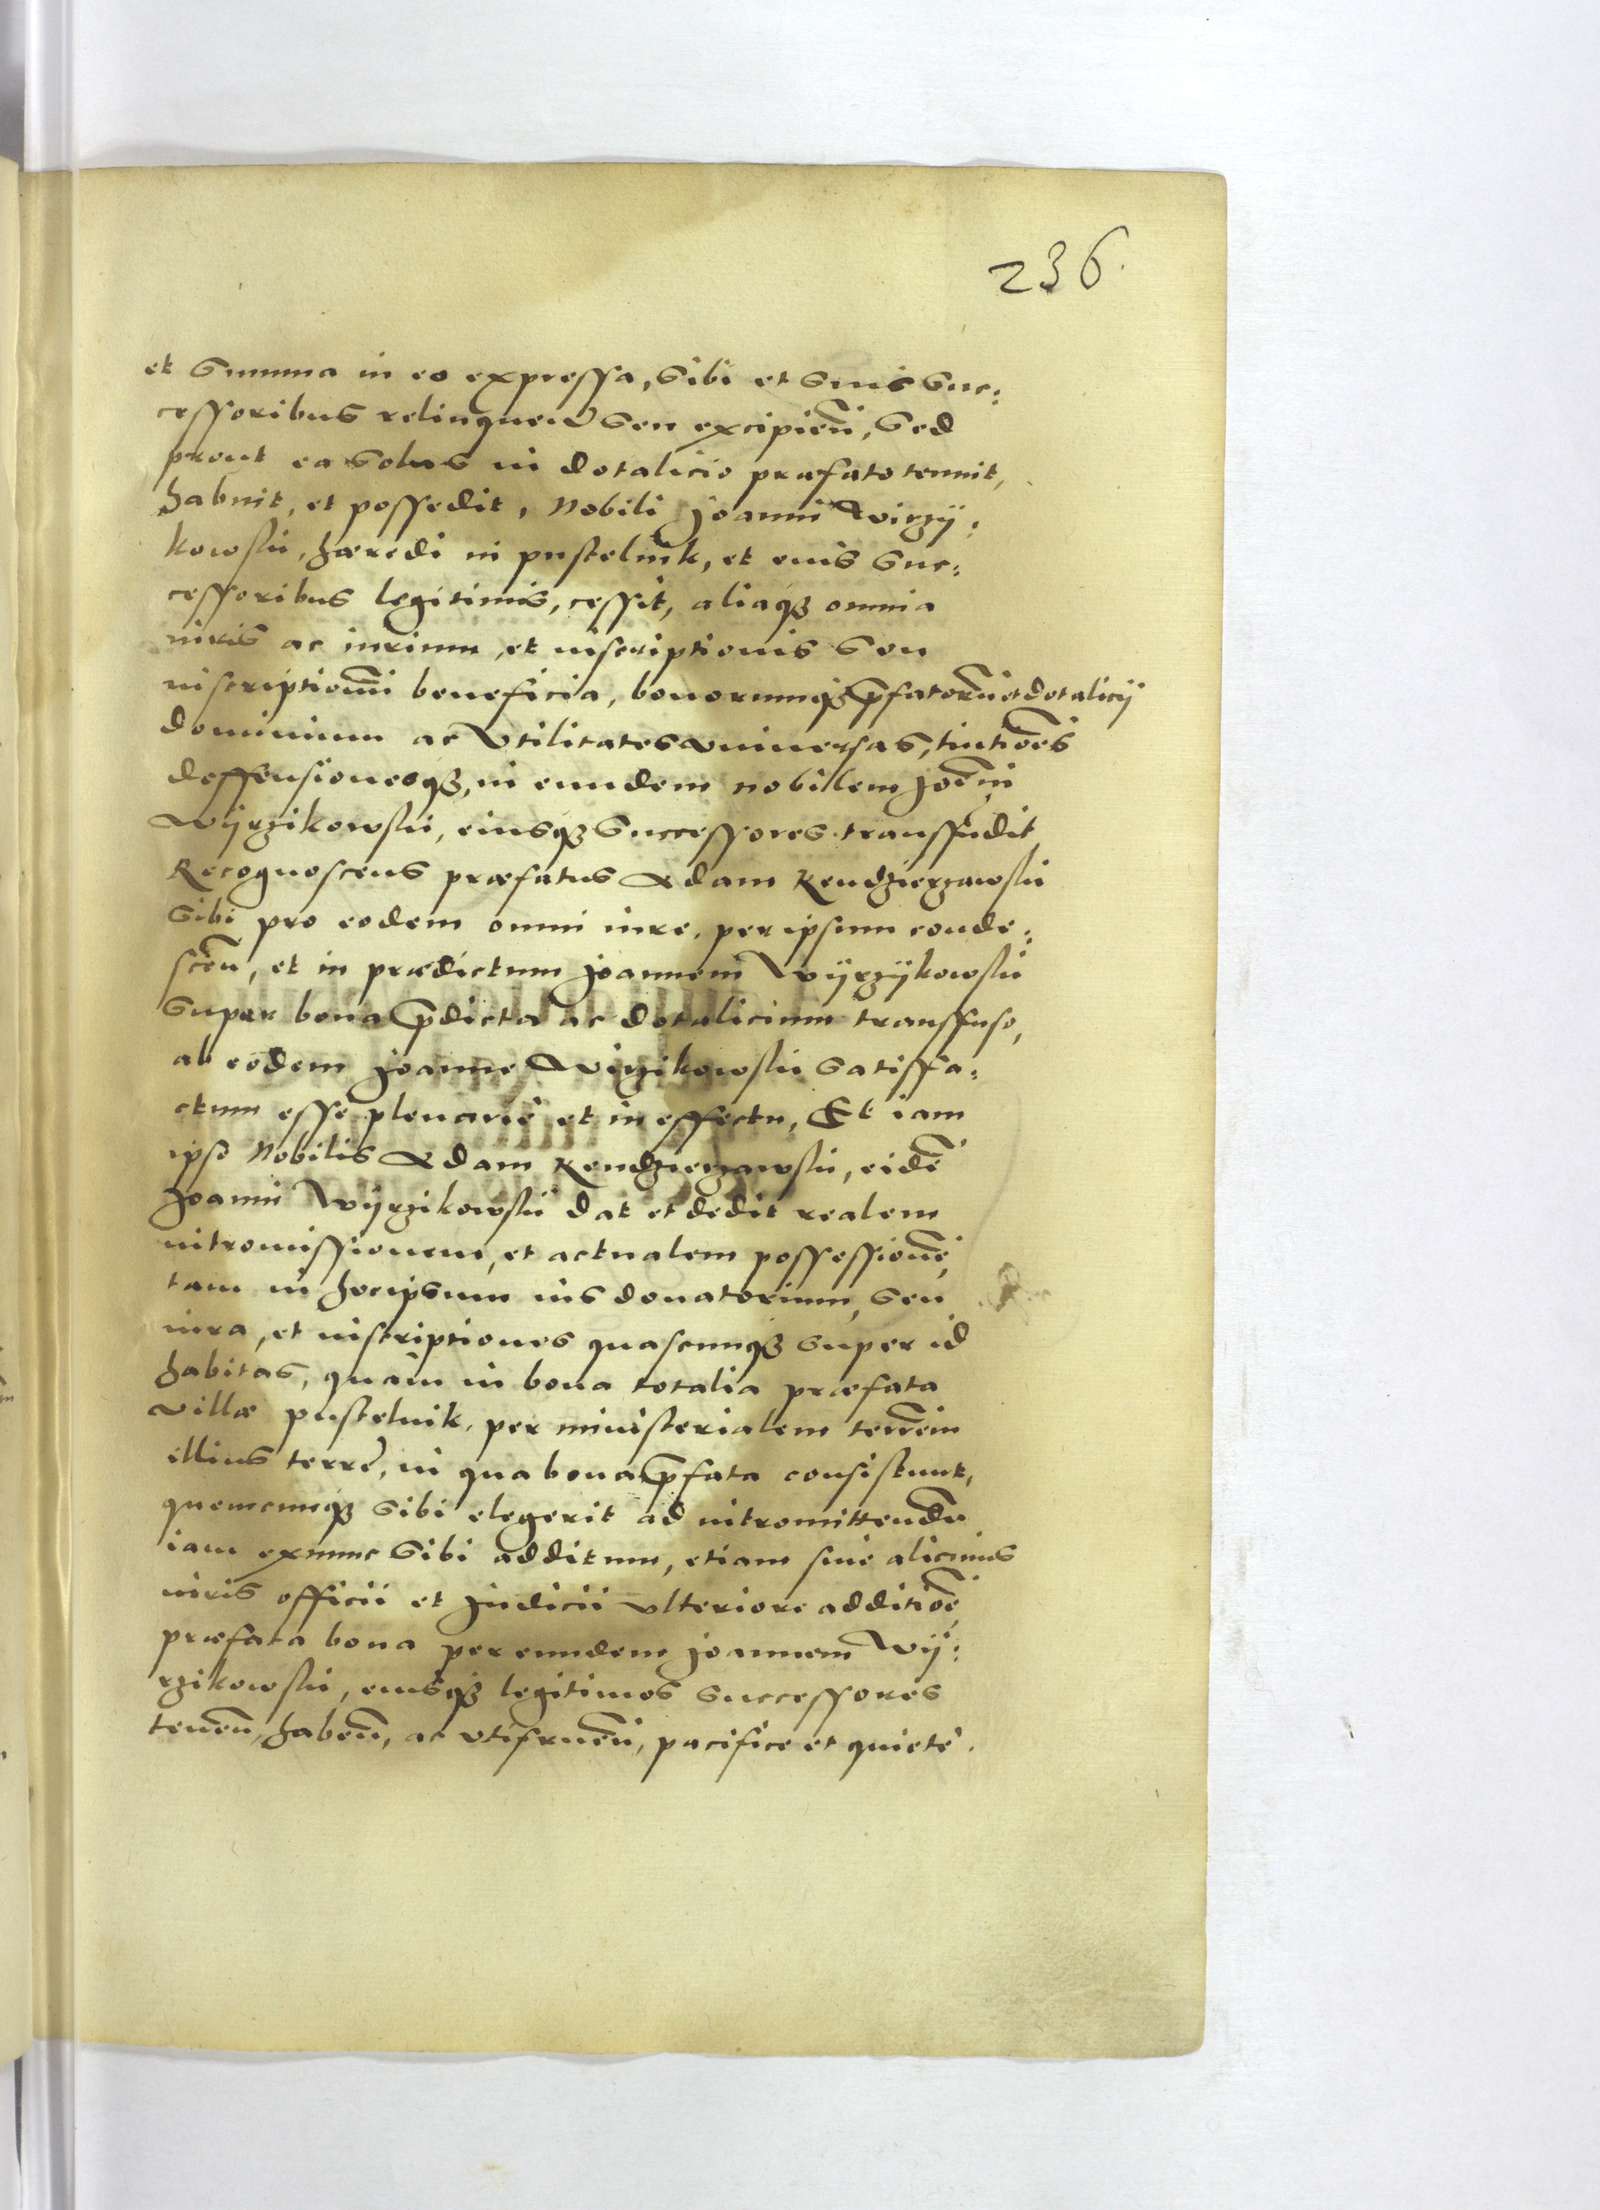 236.
et summa in eo expressa, sibi et suis suc:
cessoribus relinquen seu excipien̄, sed
prout ea solus in dotalicio præfato tenuit,
habuit, et possedit, Nobili Joanni Wirzy:
kowski, hæredi in pustelnik, et eius suc:
cessoribus legitimis, cessit, aliaq3 omnia
iuris ac iurium, et inscriptionis seu
inscriptionū beneficia, bonorumq3 p̄fatorū et dotalicij
dominium ac vtilitates vniuersas, tuitiōes
deffensionesq3, in eundem nobilem Joēm
Wyrzikowski, eiusq3 successores transfudit,
Recognoscens præfatus Adam Kendzierzawski
sibi pro eodem omni iure, per ipsum conde:
scen̄, et in prædictum Joannem Wyrzykowski
super bona p̄dicta ac dotalicium transfuso,
ab eodem Joanne Wirzikowski satisfa:
ctum esse plenarie et in effectu, Et iam
ipse Nobilis Adam Kendzierzawski, eidē
Joanni Wyrzikowski dat et dedit realem
intromissionem, et actualem possessionē,
tam in hocipsum ius donatorium, seu
iura, et inscriptiones quascunq3 super id
habitas, quàm in bona totalia præfata
villæ pustelnik, per ministerialem terrēm
illius terre, in qua bona p̄fata consistunt,
quemcunq3 sibi elegerit ad intromittendū
iam exnunc sibi additum, etiam sine alicuius
iuris officii et Judicii vlteriore additiōe,
præfata bona per eundem Joannem Wy:
rzikowski, eiusq3 legitimos successores
tenen̄, haben̄, ac vtifruen̄, pacifice et quiete.